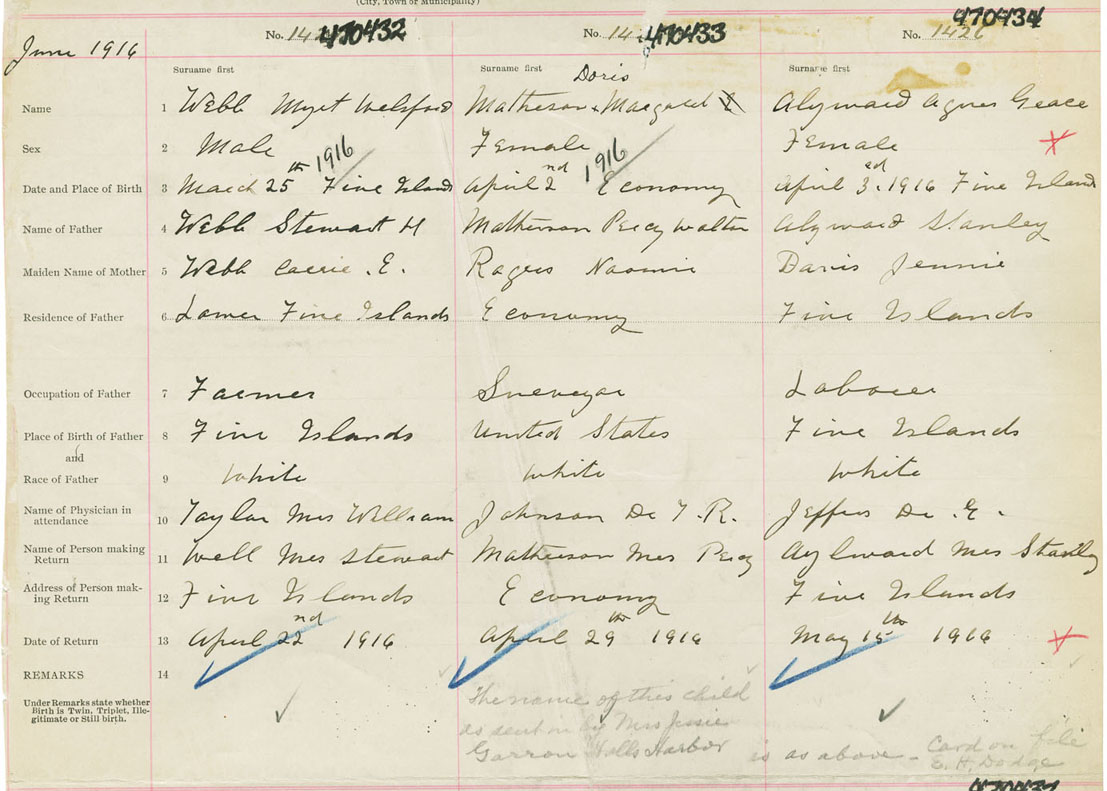 (City, Town or Municipality)
June 1916
No. 14 470432 No. 14 470433 No. 1426 470434
Surname first Surname first Surname first
Doris
Name 1 Webb Myrt Welsford Matheson Margaret Alyward Agnes Grace
Sex 2 Male Female Female
Date and Place of Birth 3 March 25th 1916 Five Island April 2nd 1916 Economy April 3rd. 1916 Five Island
Name of Father 4 Webb Stewart H Matherson Percy Walter Alyward Stanley
Maiden Name of Mother 5 Webb Carrie . E. Rogers Naomie Davis Jennie
Residence of Father 6 Lower Five Islands Economy Five Islands
Occupation of Father 7 Farmer Surveyor Laborer
Place of Birth of Father 8 Five Islands United States Five Islands
and
Race of Father 9 White White White
Name of Physician in
attendance 10 Taylor Mrs William Johnson Dr T. R. Jeffers Dr . E.
Name of Person making
Return 11 Webb Mrs Stewart Matherson Mrs Percy Aylward Mrs Stanley
Address of Person mak-
ing Return 12 Five Islands Economy Five Islands
Date of Return 13 April 22nd 1916 April 29th 1916 May 15th 1916
REMARKS 14
Under Remarks state whether
Birth is Twin, Triplet, Ille-
gitimate or Still birth.
The name of this child
as sent in by Mrs Jessie
Garron Halls Harbor is as above - Card on file
E. H. Dodge